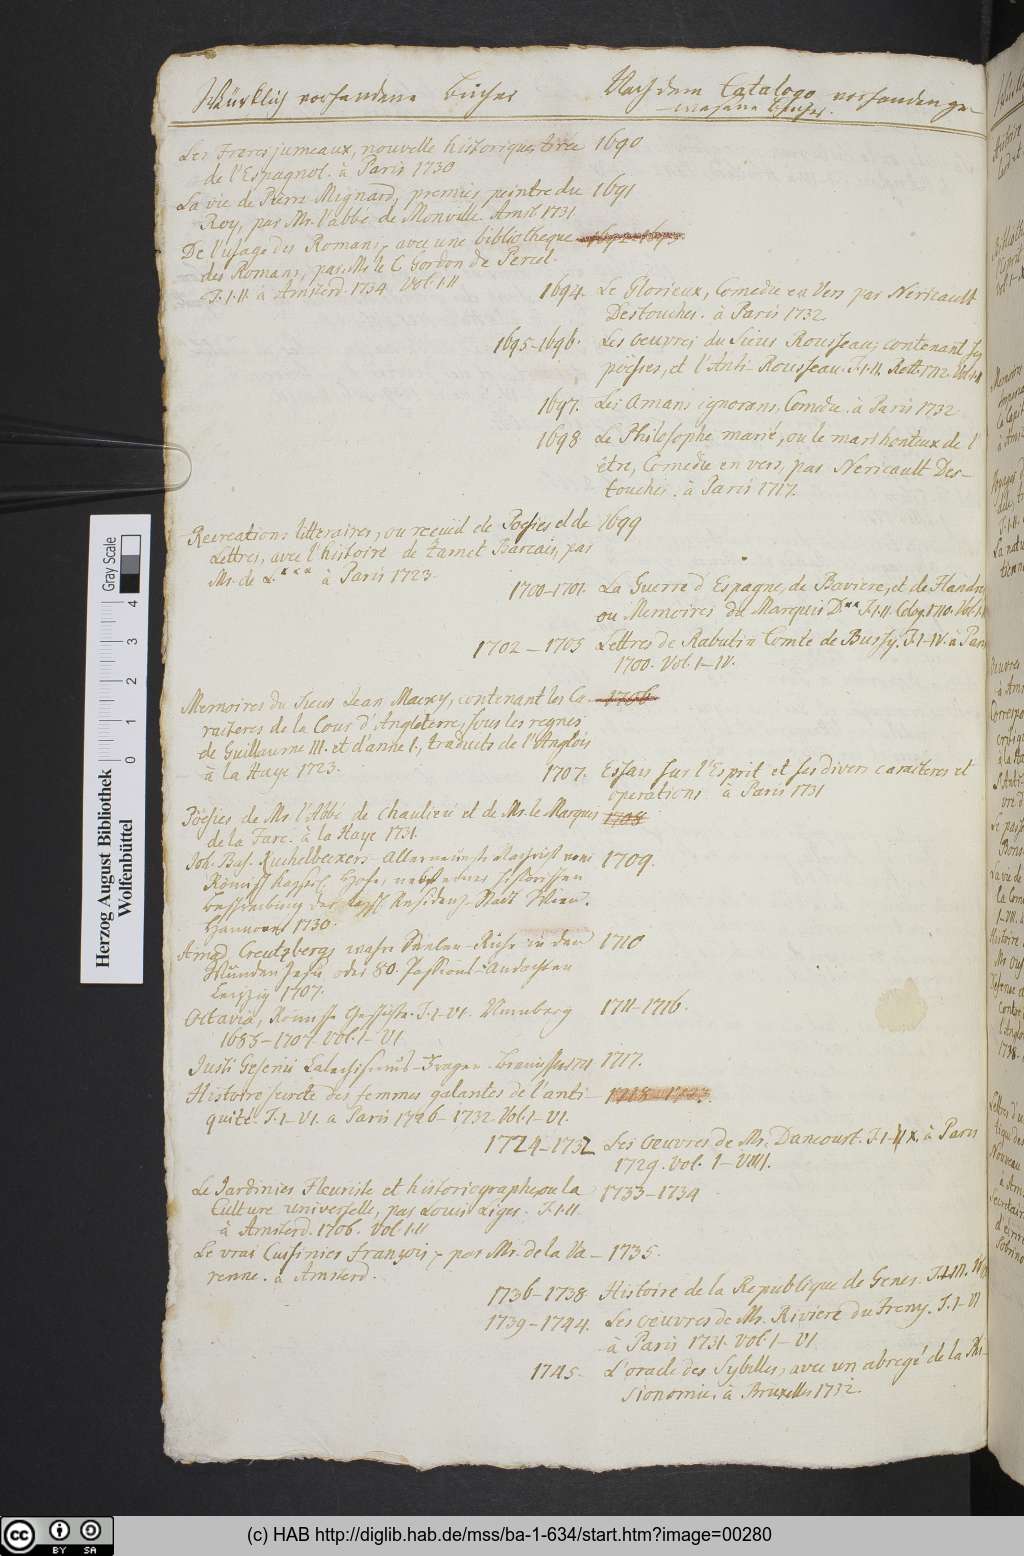 Würklich vorhandene Bücher
Nach dem Catalogo vorhanden ge-
wesene Bücher.
Les Freres jumeaux, nouvelle historique, tirée 1690
de l'Espagnol. à Paris 1730
La vie de Pierre Mignard, premier peintre du 1691
Roy, par Mr. l'abbé de Monville. Amst. 1731
De l'usage des Romans, avec une bibliotheque 1692-1693.
des Romans, par Mr. le C. Gordon de Percel.
T. I. II. à Amsterd. 1734 Vol. I. II
1694. Le Glorieux, Comedie en Vers par Nericault
Destouches. à Paris 1732.
1695-1696. Les oeuvres du Sieur Rousseau, contenant ses
poësies, et l'Anti-Rousseau. T. I. II. Rott. 1712. Vol. I. II
1697. Les Amans ignorans, Comedie. à Paris 1732
1698 Le Philosophe marié, ou le mari honteux de l'
être, Comedie en vers, par Nericault Des-
touches. à Paris 1717.
Recreations litteraires, ou recüeil de Poesies et de 1699
Lettres, avec l'histoire de Zamet Barcais, par
Mr. de L.*** à Paris 1723.
1700-1701. La Guerre d'Espagne, de Baviere, et de Flandre
ou Memoires du Marquis D** T. I. II. Colog. 1710. Vol. I. II
1702-1705 Lettres de Rabutin Comte de Bussy. T. I-IV. à Paris
1700. Vol. I-IV.
Memoires du Sieur Jean Macky, contenant les Ca- 1706
racteres de la Cour d'Angleterre, sous les regnes
de Guillaume III. et d'anne I., traduits de l'Anglois
à la Haye 1723.
1707. Essais sur l'Esprit et ses divers caracteres et
operations à Paris 1731
Poësies de Mr. l'Abbé de Chaulieu et de Mr. le Marquis 1708
de la Fare. à la Haye 1731.
Joh. Bas. Kuchelbeckers Allerneueste Nachricht vom 1709.
Römisch Kayserl. Hofe, nebst einer historischen
Beschreibung der Kayserl. Residenz-Stadt Wien.
Hannover 1730.
Amad. Creutzbergs wahre Seelen-Ruhe in den 1710
Wunden Jesu, oder 80. Passions-Andachten
Leipzig 1707.
Octavia, Römische Geschichte. T. I-VI. Nürnberg 1711-1716.
1685-1707. Vol. I-VI
Justi Gesenii Catechismus-Fragen. 1717.
Histoire secrete des femmes galantes de l'anti- 1718-1723.
quité. T. I-VI. a Paris 1726-1732. Vol. I-VI.
1724-1732 Les Oeuvres de Mr. Dancourt. à Paris
1729. Vol. I-VIIII.
Le Jardinier Fleuriste et historiographe, ou la 1733-1734
Culture universelle, par Louis Liger. T. I. II.
à Amsterd. 1706. Vol. I. II
Le vrai Cuisinier françois, par Mr. de la Va- 1735.
renne. à Amsterd.
1736-1738 Histoire de la Republique de Genes. T. I-III.
1739-1744. Les oeuvres de Mr. Riviere du Freny. T. I-VI
à Paris 1731. Vol. I-VI
1745. L'oracle des Sybilles, avec un abregé de la Phi-
sionomie. à Bruxelles 1732.
Herzog August Bibliothek
Wolfenbüttel
Gray Scale
0 1 2 3 4
(c) HAB http://diglib.hab.de/mss/ba-1-634/start.htm?image=00280
cc BY SA